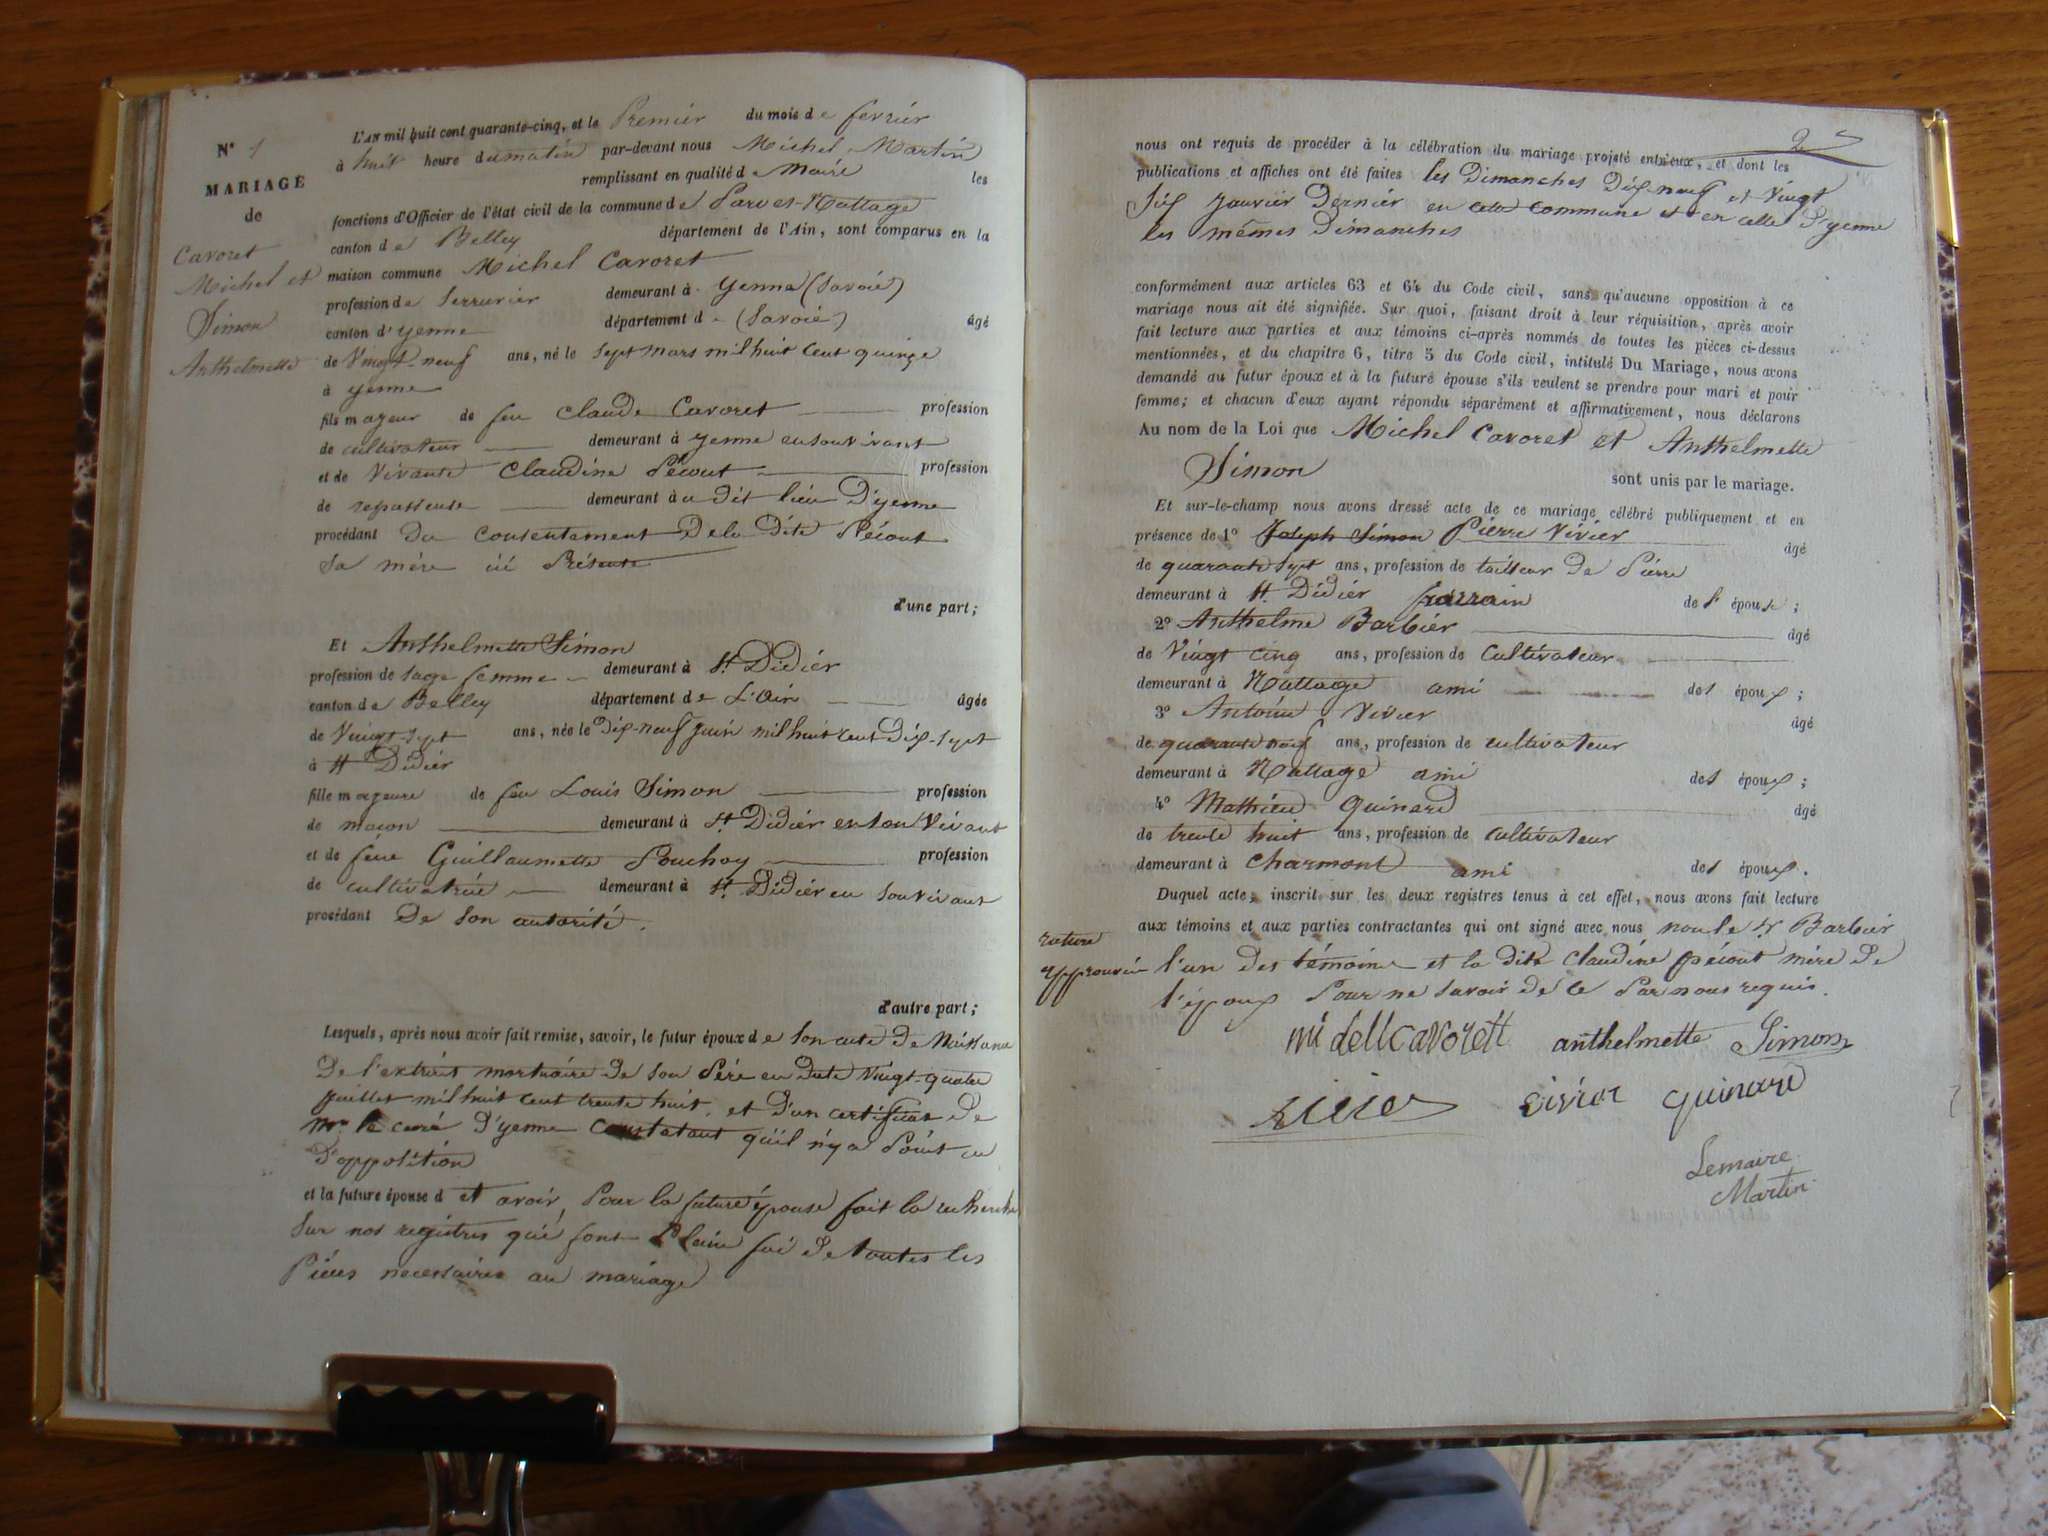 N° 1
MARIAGE
de
Cavoret
Michel et
Simon
Anthelmette
L'AN mil huit cent quarante-cinq, et le Premier du mois de fevrier
à huit heure du matin par-devant nous Michel Martin
remplissant en qualité de Maire les
fonctions d'Officier de l'état civil de la commune de Parves-Nattage
canton de Belley département de l'Ain, sont comparus en la
maison commune Michel Cavoret
profession de Serrurier demeurant à yenne (Savoie)
canton d'yenne département de (Savoie) âgé
de Vingt-neuf ans, né le sept mars mil huit cent quinze
à yenne
fils majeur de feu Claude Cavoret profession
de cultivateur demeurant à yenne en son vivant
et de Vivante Claudine Pécout profession
de repasseuse demeurant au dit lieu D'yenne
procédant Du Consentement De la Dite Pécout
Sa mère ici Présente
d'une part;
Et Anthelmette Simon
profession de sage femme demeurant à St Didier
canton de Belley département de L'Ain âgée
de Vingt-sept ans, née le Dix-neuf juin mil huit cent Dix-sept
à St Didier
fille majeure de feu Louis Simon profession
de macon demeurant à St Didier en son Vivant
et de feue Guillaumette Pouchoy profession
de cultivatrice demeurant à St Didier en son vivant
procédant De son autorité.
d'autre part;
Lesquels, après nous avoir fait remise, savoir, le futur époux de son acte de Naissance
De l'extrait mortuaire de son Père en date Vingt-quatre
juillet mil huit cent trente huit. et D'un certificat De
Mr le curé D'yenne constatant qu'il n'y a Point eu
D'opposition
et la future épouse d et avoir, Pour la future épouse fait la recherche
Sur nos registres qui font Plein foi De toutes les
Pièces necessaires au mariage
2
nous ont requis de procéder à la célébration du mariage projeté entr'eux, et dont les
publications et affiches ont été faites les Dimanches Dix neuf et Vingt
Six Janvier Dernier en cette commune et en celle D'yenne
les mêmes Dimanches
conformément aux articles 63 et 64 du Code civil, sans qu'aucune opposition à ce
mariage nous ait été signifiée. Sur quoi, faisant droit à leur réquisition, après avoir
fait lecture aux parties et aux témoins ci-après nommés de toutes les pièces ci-dessus
mentionnées, et du chapitre 6, titre 5 du Code civil, intitulé Du Mariage, nous avons
demandé au futur époux et à la future épouse s'ils veulent se prendre pour mari et pour
femme; et chacun d'eux ayant répondu séparément et affirmativement, nous déclarons
Au nom de la Loi que Michel Cavoret et Anthelmette
Simon
sont unis par le mariage.
Et sur-le-champ nous avons dressé acte de ce mariage célébré publiquement et en
présence de 1° Joseph Simon Pierre Vivier âgé
de quarante sept ans, profession de tailleur De Pierre
demeurant à St. Didier parrain de l'épouse;
2° Anthelme Barbier âgé
de Vingt cinq ans, profession de Cultivateur
demeurant à Nattage ami de l'époux;
3° Antoine Vivier âgé
de quarante neuf ans, profession de cultivateur
demeurant à Nattage ami de l'époux;
4° Mathieu Guinard âgé
de trente huit ans, profession de cultivateur
demeurant à Charmont ami de l'époux.
Duquel acte, inscrit sur les deux registres tenus à cet effet, nous avons fait lecture
aux témoins et aux parties contractantes qui ont signé avec nous non le Sr Barbier
rature
approuvée
l'un des témoins et la dite Claudine Pécout mère De
l'époux Pour ne savoir de ce Par nous requis.
anthelmette Simon
vivier guinard
Lemaire
Martin